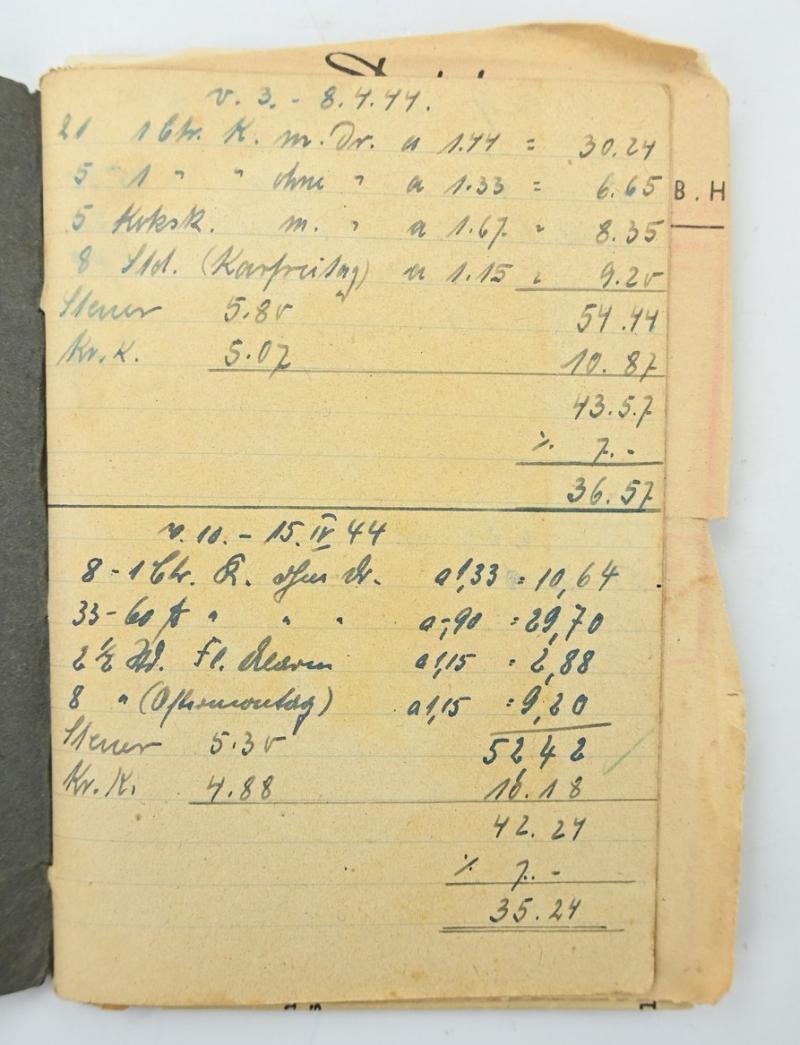 v. 3. - 8.4.44.
21 1 Ctr. K. m. Dr. a 1.44 = 30.24
5 1 " " ohne " a 1.33 = 6.65
5 Koksk. m. " a 1.67 = 8.35
8 Std. (Karfreitag) a 1.15 = 9.20
Steuer 5.80 54.44
Kr. K. 5.07 10.87
43.57
% 7.-
36.57
v. 10. - 15. IV 44
8 - 1 Ctr. K. ohne Dr. a 1,33 = 10,64
33 - 60 " " " a -,90 = 29,70
2 ½ Std. Fl. Alarm a 1,15 = 2,88
8 " (Ostermontag) a 1,15 = 9,20
Steuer 5.30 52,42
Kr. K. 4.88 10.18
42.24
% 7.-
35.24
B.H